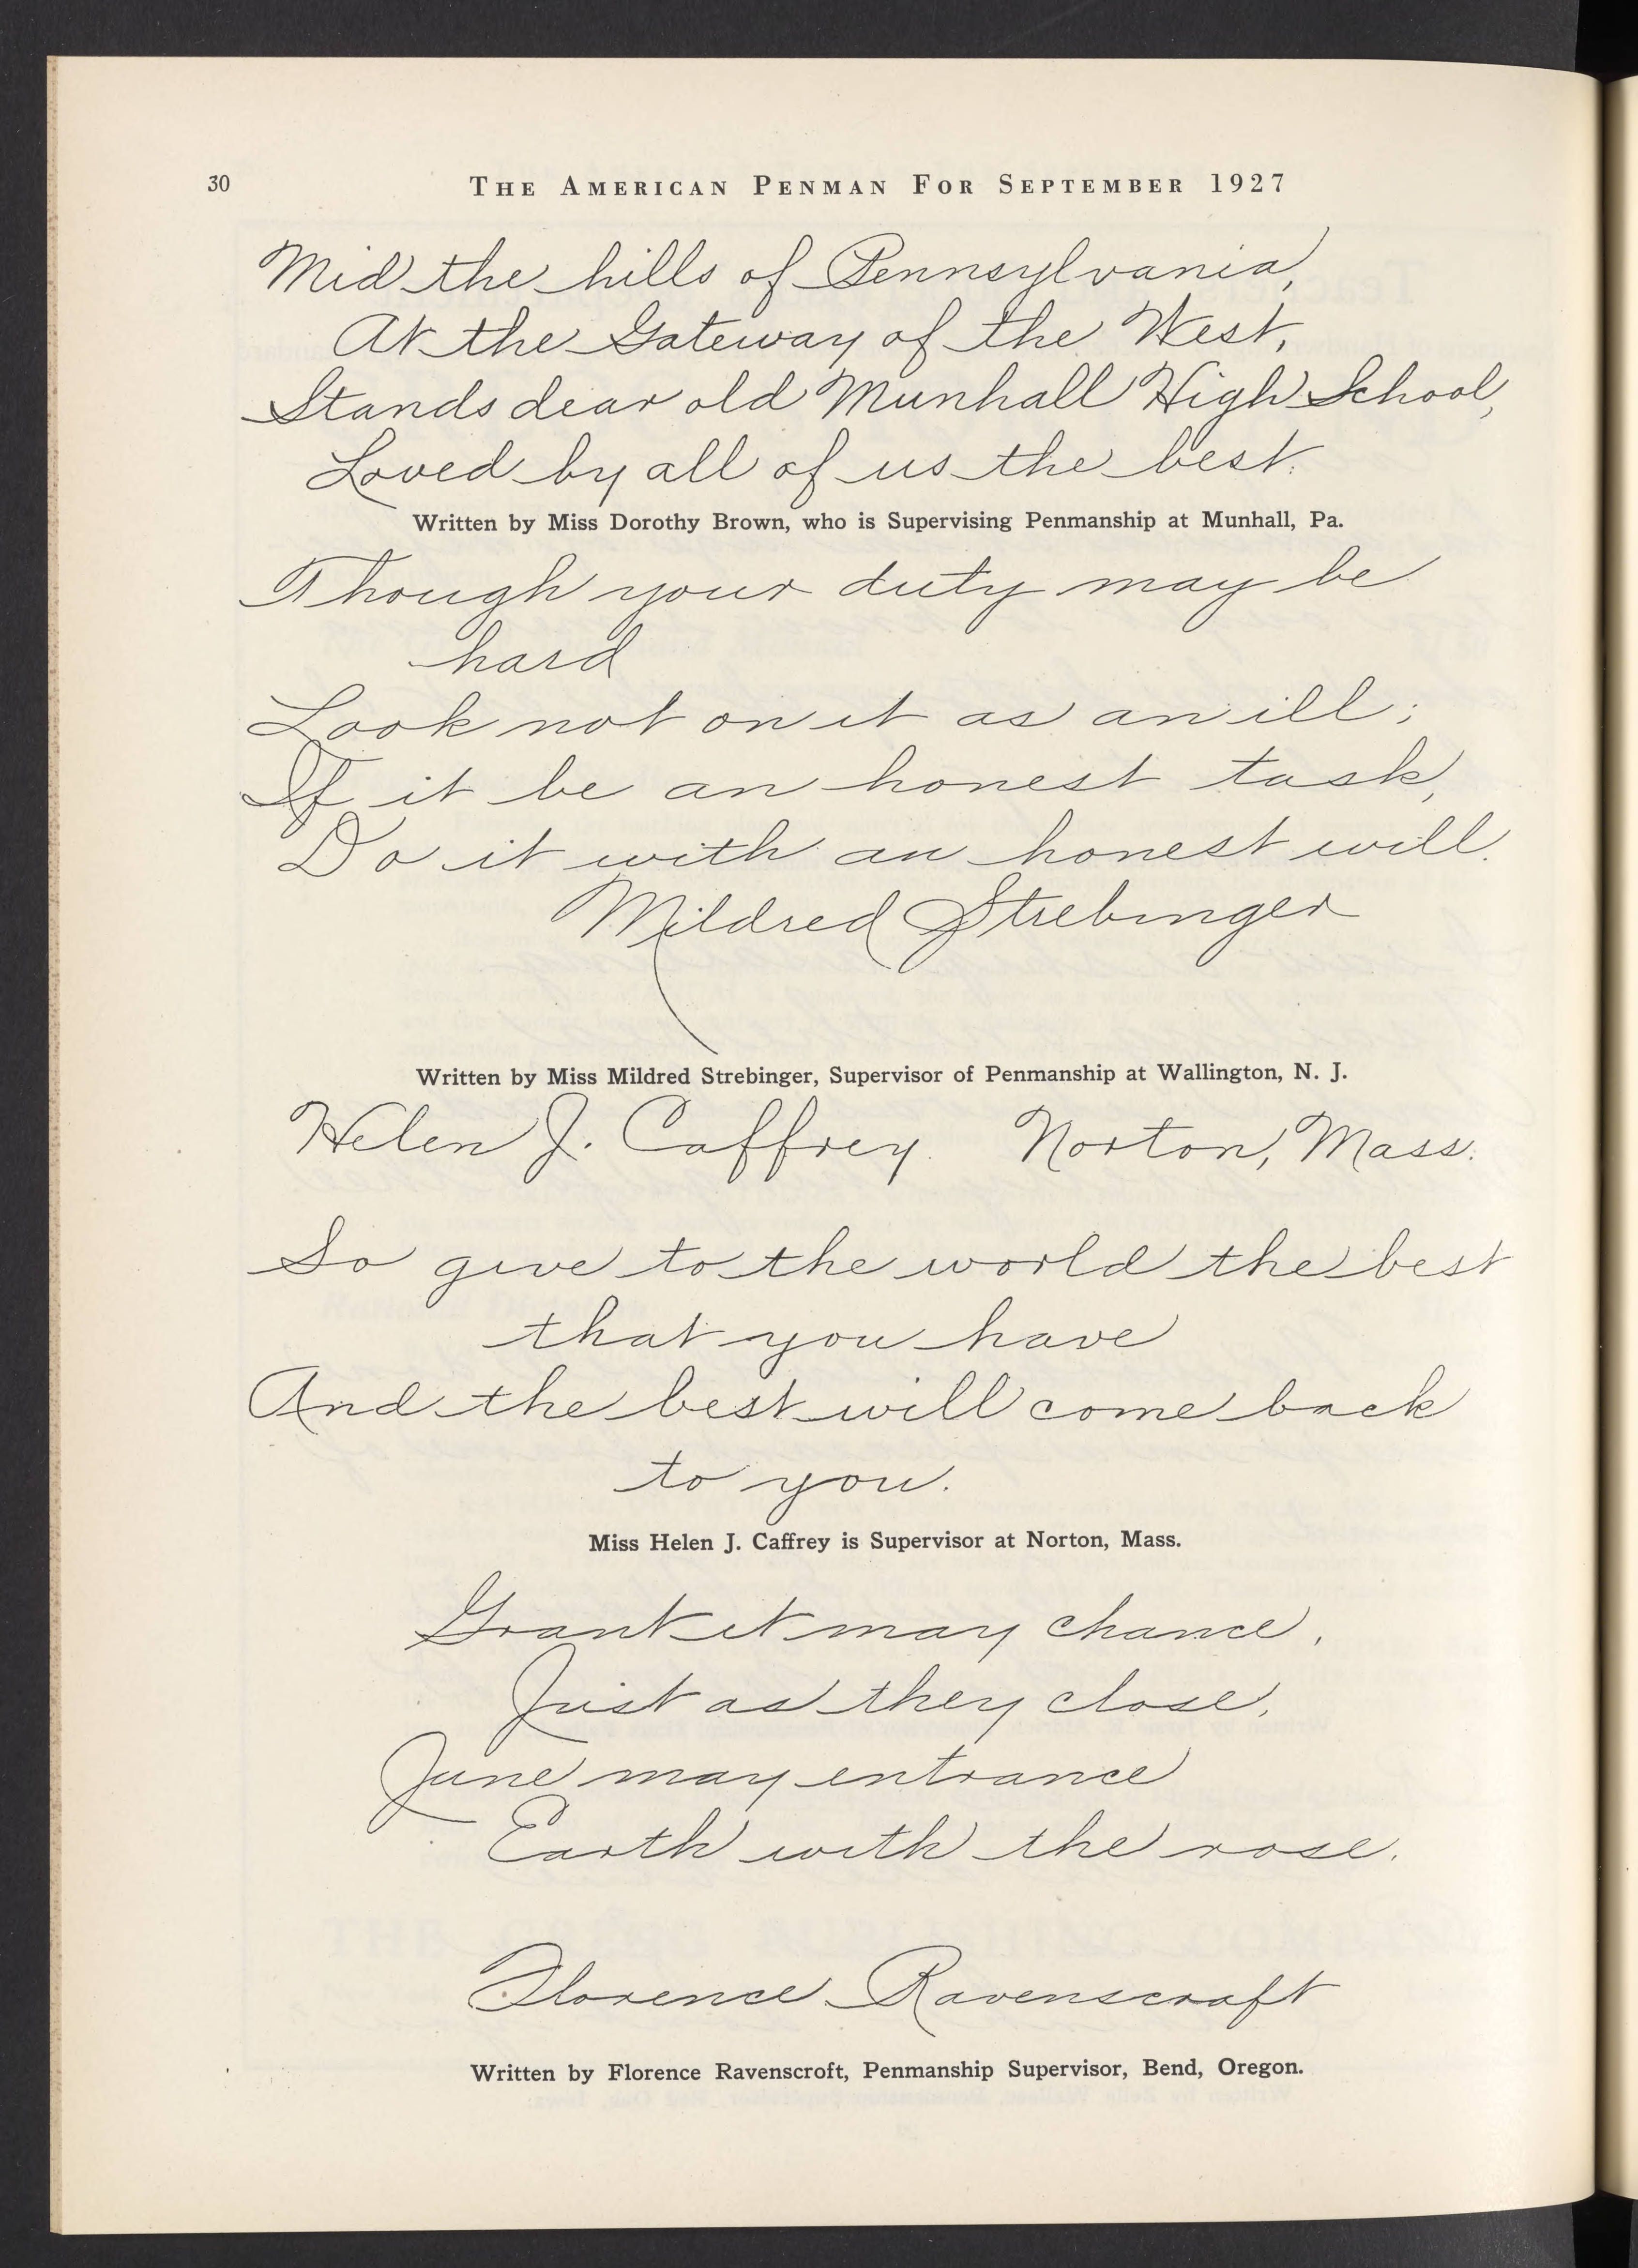 30
THE AMERICAN PENMAN FOR SEPTEMBER 1927
Mid the hills of Pennsylvania,
At the Gateway of the West,
Stands dear old Munhall High School,
Loved by all of us the best.
Written by Miss Dorothy Brown, who is Supervising Penmanship at Munhall, Pa.
Though your duty may be
hard
Look not on it as an ill;
If it be an honest task,
Do it with an honest will.
Mildred Strebinger
Written by Miss Mildred Strebinger, Supervisor of Penmanship at Wallington, N. J.
Helen J. Caffrey. Norton, Mass.
So give to the world the best
that you have
And the best will come back
to you.
Miss Helen J. Caffrey is Supervisor at Norton, Mass.
Grant it may chance,
Just as they close,
June may entrance
Earth with the rose.
Florence Ravenscraft
Written by Florence Ravenscroft, Penmanship Supervisor, Bend, Oregon.